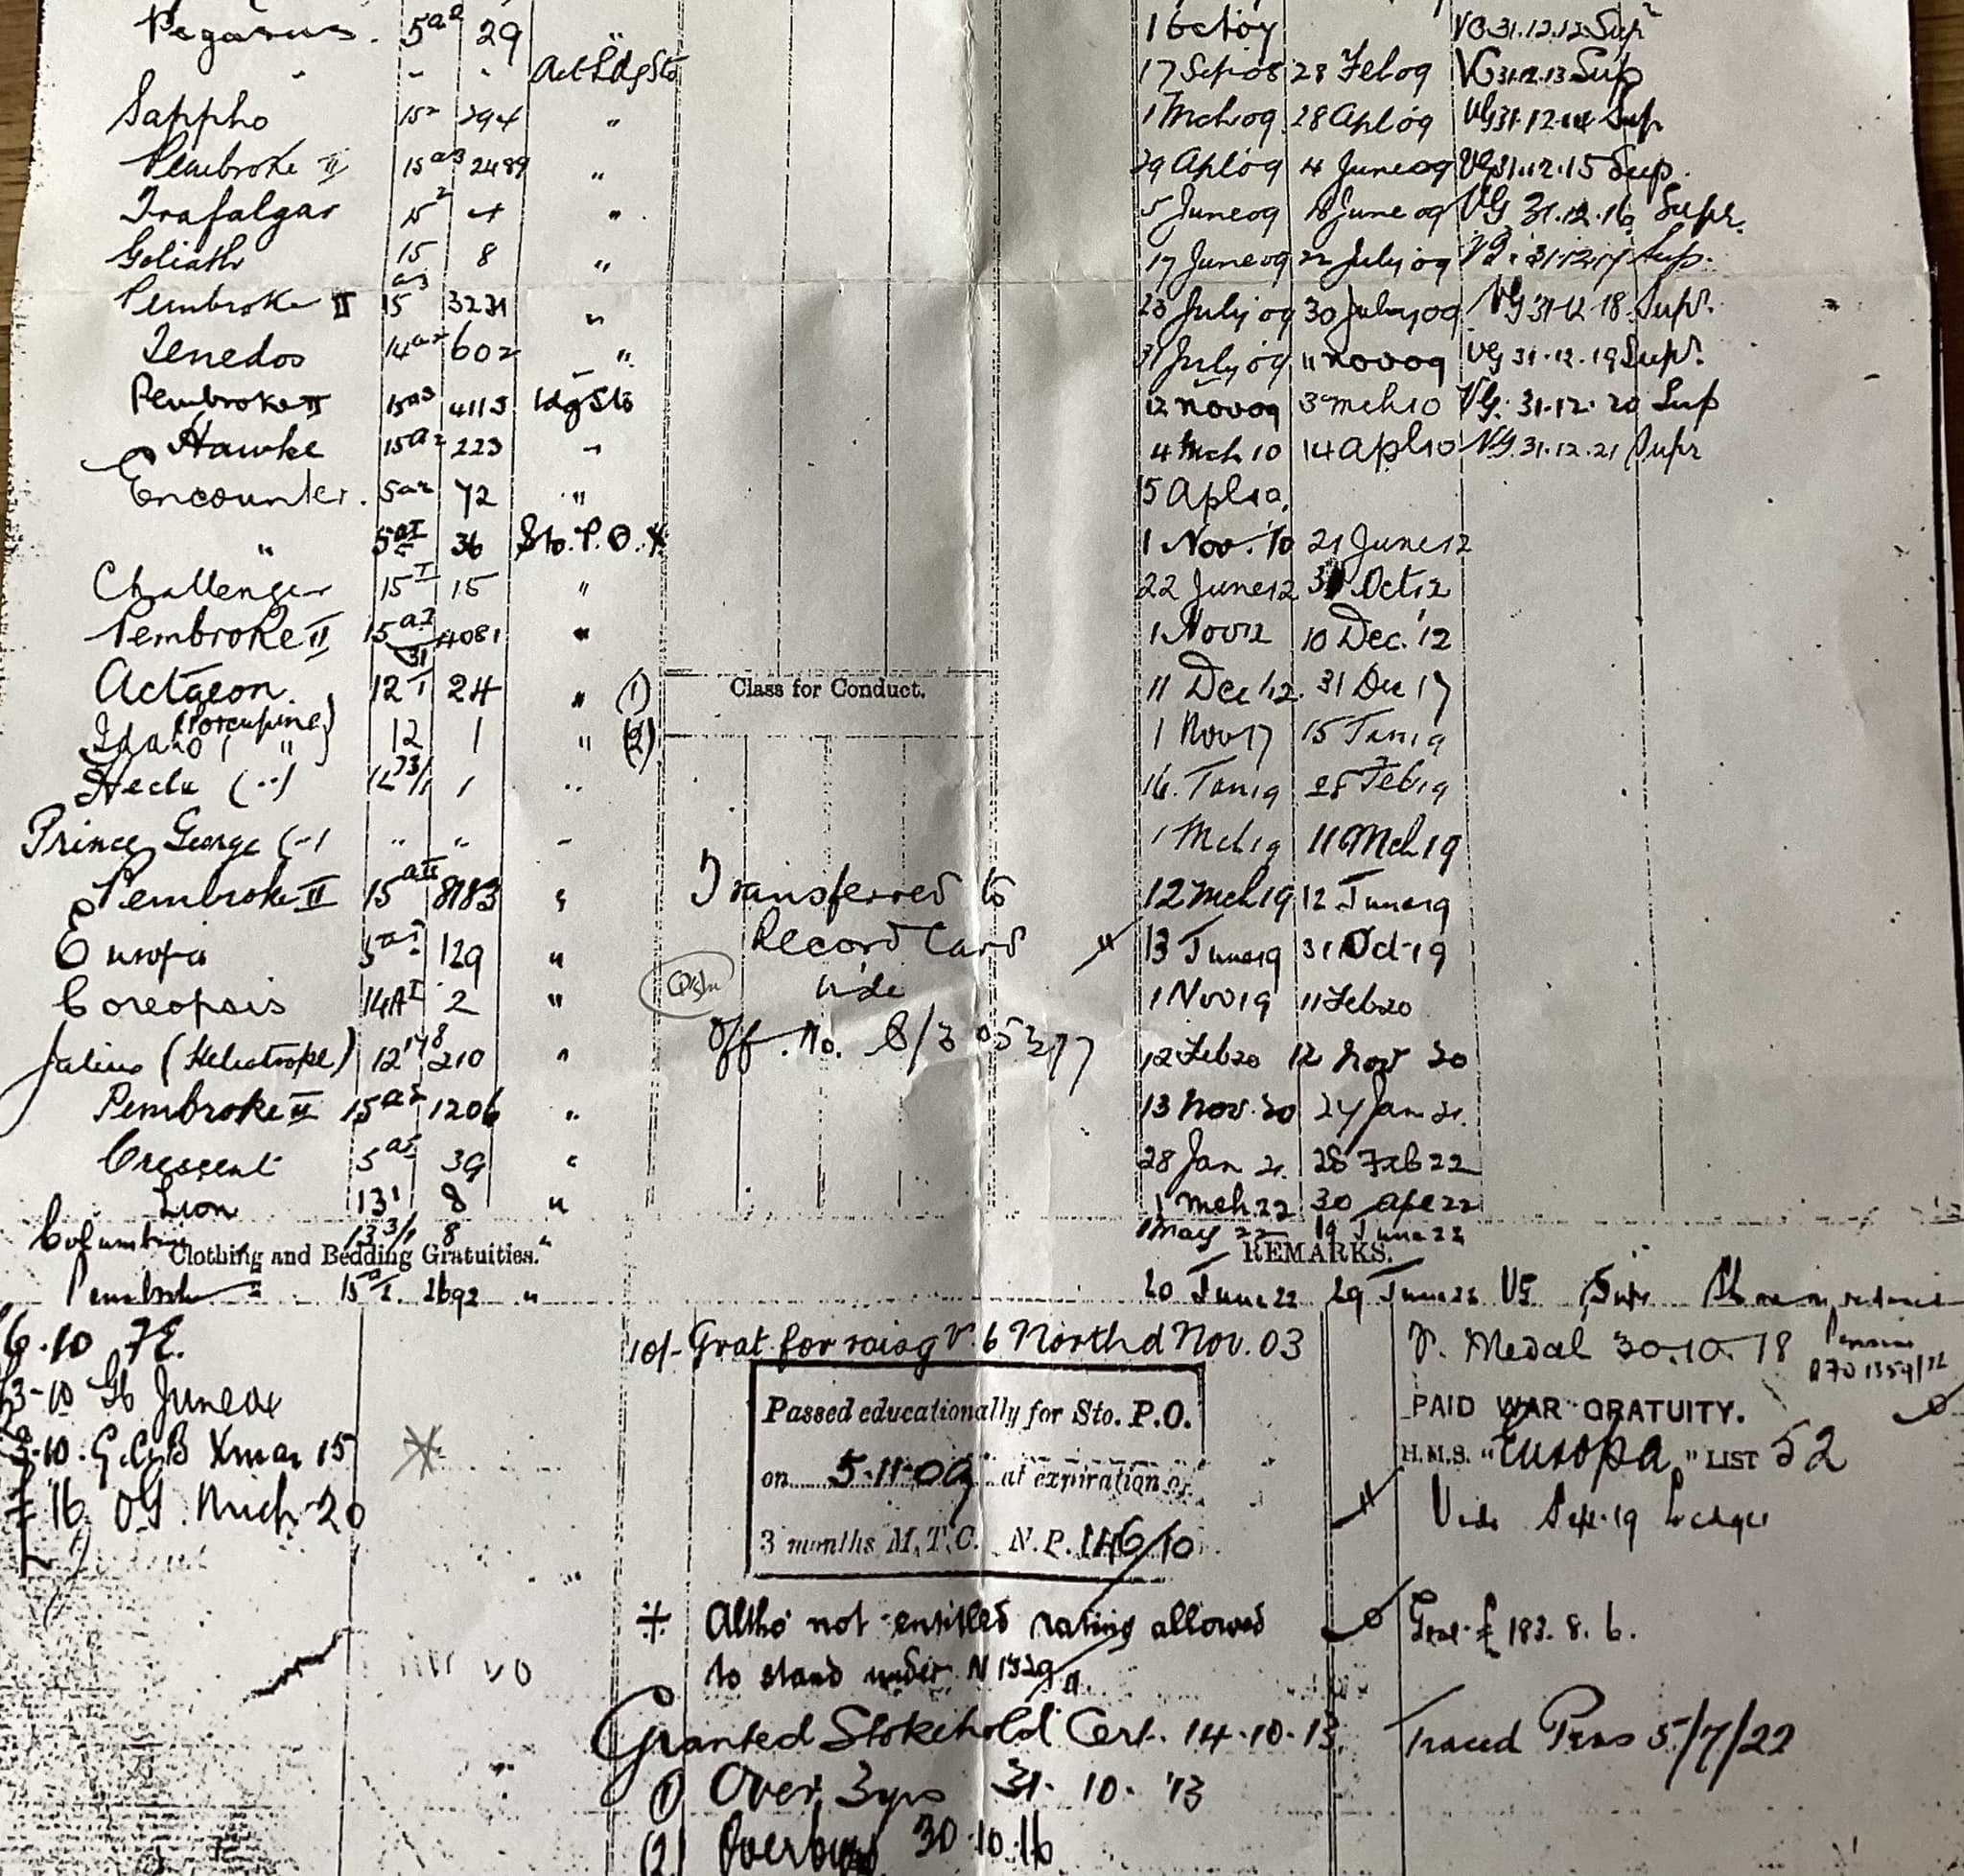 Pegasus. 5 a2 29 1 Oct 07 VG 31.12.12 Supr
" - " Act Ldg Sto 17 Sep 08 28 Feb 09 VG 31.12.13 Sup
Sappho 15 2 294 " 1 Mch 09 28 Apl 09 VG 31.12.14 Sup
Pembroke II 15 a3 2489 " 29 Apl 09 4 June 09 VG 31.12.15 Sup.
Trafalgar 15 2 4 " 5 June 09 16 June 09 VG 31.12.16 Supr.
Goliath 15 8 " 17 June 09 22 July 09 VG. 31.12.17 Sup.
Pembroke II 15 a3 3231 " 23 July 09 30 July 09 VG 31.12.18 Supr.
Tenedos 14 a2 602 " 31 July 09 11 Nov 09 VG 31.12.19 Supr.
Pembroke II 15 a3 4115 Ldg Sto 12 Nov 09 3 Mch 10 VG. 31.12.20 Sup
Hawke 15 a2 223 " 4 Mch 10 14 Apl 10 VG. 31.12.21 Supr
Encounter. 5 a2 72 " 15 Apl 10.
" 5 a I 36 Sto. P.O. * 1 Nov. 10 21 June 12
Challenger 15 I 15 " 22 June 12 31 Oct 12
Pembroke II 15 a2 4081 " 1 Nov 12 10 Dec. '12
Actaeon. 12 I 24 " (1) Class for Conduct. 11 Dec 12. 31 Dec 17
(Porcupine)
Idaho ( " ) 12 1 " (2) 1 Nov 17 15 Jan 19
Hecla ( " ) 1 " 16. Jan 19 28 Feb 19
Prince George ( " ) " " - 1 Mch 19 11 Mch 19
Pembroke II 15 a II 8183 " Transferred to 12 Mch 19 12 June 19
Europa 5 a2 129 " Record Card 13 June 19 31 Oct 19
Coreopsis 14 A I 2 " vide 1 Nov 19 11 Feb 20
Off. No. S/305377
Julius (Heliotrope) 12 210 " 12 Feb 20 12 Nov 20
Pembroke II 15 a2 1206 " 13 Nov. 20 27 Jan 21.
Crescent 5 a2 39 " 28 Jan 21. 28 Feb 22
Lion 13 1 8 " 1 Mch. 22 30 Apl 22
Columbine 13 3/1 8 " 1 May 22 19 June 22
Clothing and Bedding Gratuities. REMARKS.
Pembroke II 15 a/I 1692 " 20 June 22 29 June 22 VG Supr
10/- Grat. for raisg V. 6 North d Nov. 03 V. Medal 30.10.18 Pension
Passed educationally for Sto. P.O.
on 5.11.09 at expiration of
3 months M.T.C. N.P. 146/10
PAID WAR GRATUITY.
H.M.S. "Europa" LIST 52
Vide Sep. 19 Ledger
G.C.B Xmas 15
£ 16 Mich 20
* Altho' not entitled rating allowed
to stand under N 1329
Grat. £ 183. 8. 6.
Granted Stokehold Cert. 14.10.13.
Traced Pens 5/7/22
(1) Over 3 yrs 31. 10. '13
(2) Over 6 yrs 30.10.16